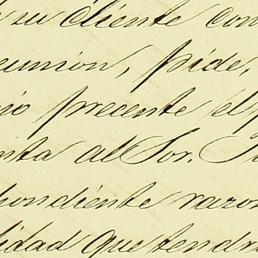 su cliente con
eunion, pide,
precente el
al Sor.
pondiente razon
lidad que tendra